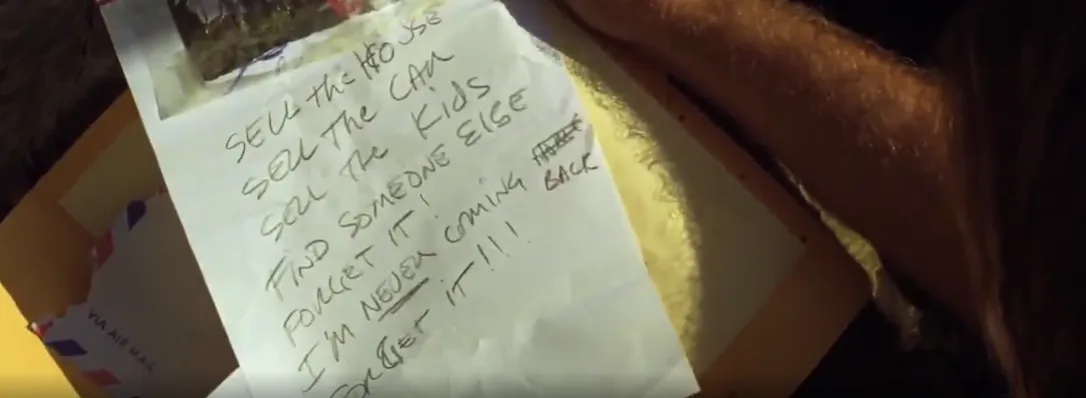 SELL the HOUSE
SELL THE CAR
SELL THE KIDS
FIND SOMEONE ELSE
FORGET IT!
I'M NEVER COMING BACK
FORGET IT!!!
VIA AIR MAIL